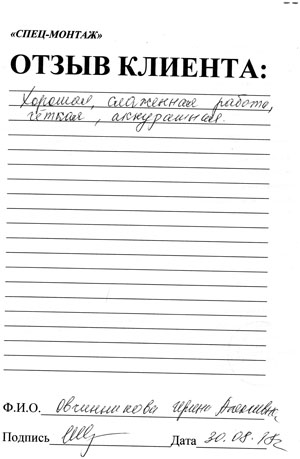 «СПЕЦ-МОНТАЖ»
ОТЗЫВ КЛИЕНТА:
Хорошая, слаженная работа,
чёткая, аккуратная.
Ф.И.О. Овчинникова
Подпись Дата 30.08.18г